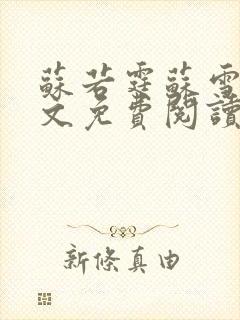 蘇若霆蘇雪
文免費閱讀
新條真由